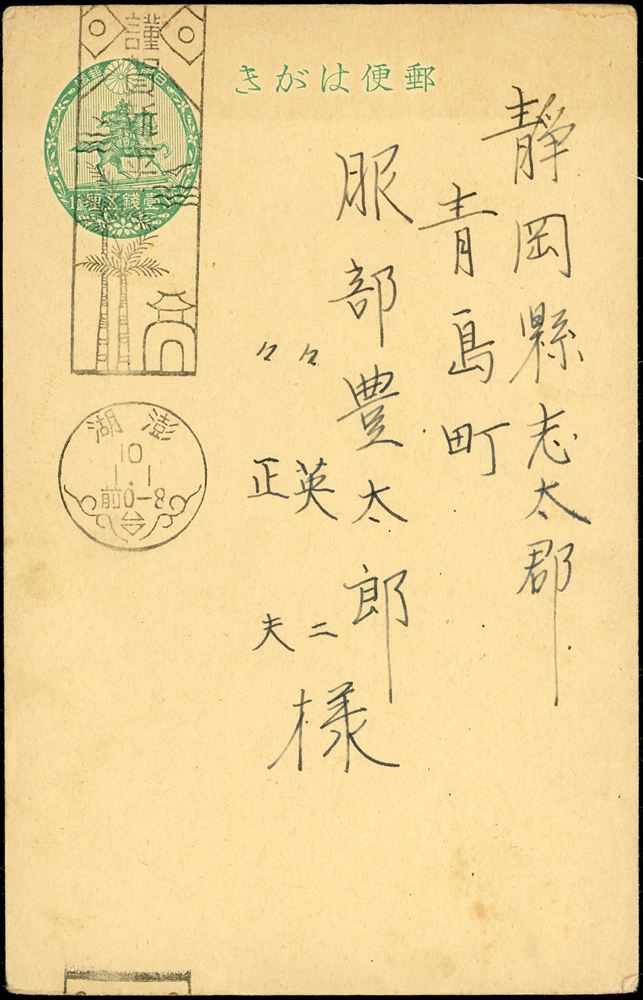 郵便はがき
靜岡縣志太郡
青島町
服部豊太郎
々英二
々正夫
様
謹賀
澎湖
10
1.1
前0-8
台